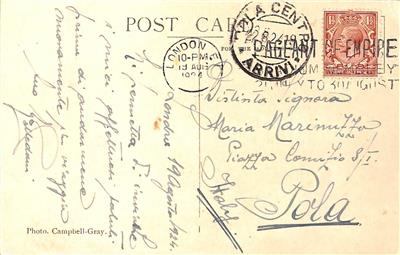 POST CARD
LONDON
10-PM
19 AUG
1924
POLA CENTRO
ARRIVI
PAGEANT OF EMPIRE
TO 30 AUGUST
Londra 19 Agosto 1924.
Si permetta di inviarle
i miei affettuosi saluti
prima di
nuovamente in viaggio
Suo
Distinta Signora
Maria Marinuzzo
Piazza Comizio 3/I
Pola
Italy
Photo. Campbell-Gray.